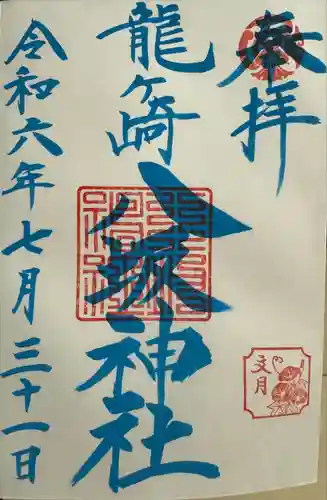 奉拝
龍ケ崎
八坂神社
令和六年七月三十一日
文月